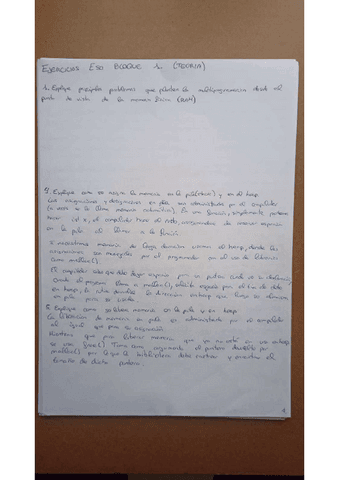 EJERCICIOS ESO BLOQUE 1. (TEORIA)
1. Explique principales problemas que plantea la multiprogramación desde el
punto de vista de la memoria física (RAM)
Explique como se asigna la memoria en la pila (stack) y en el heap
Las asignaciones y designaciones en pila son administradas por el compilador
(a veces se le llama memoria automática). En una función, simplemente podemos
hacer int x, el compilador hará el resto, asegurándose de reservar espacio
en la pila al llamar a la función.
Si necesitamos memoria de larga duración usamos el heap, donde las
asignaciones son manejadas por el programador con el uso de librerías
como malloc().
El compilador sabe que debe hacer espacio para un puntero cuando ve la
cuando el programa llama a malloc(), solicita espacio para el de dato
en heap, la rutina devuelve la dirección en heap que luego se almacena
en pila para su usado.
Explique como se libera memoria en la pila y en heap
La liberación de memoria en pila es administrada por el compilador
al igual que pasa la asignación.
Mientras que para liberar memoria que ya no esté en uso en heap
se usa free(). Toma como argumento el puntero devuelto por
malloc() por lo que la biblioteca debe rastrear y encontrar el
tamaño de dicho puntero.